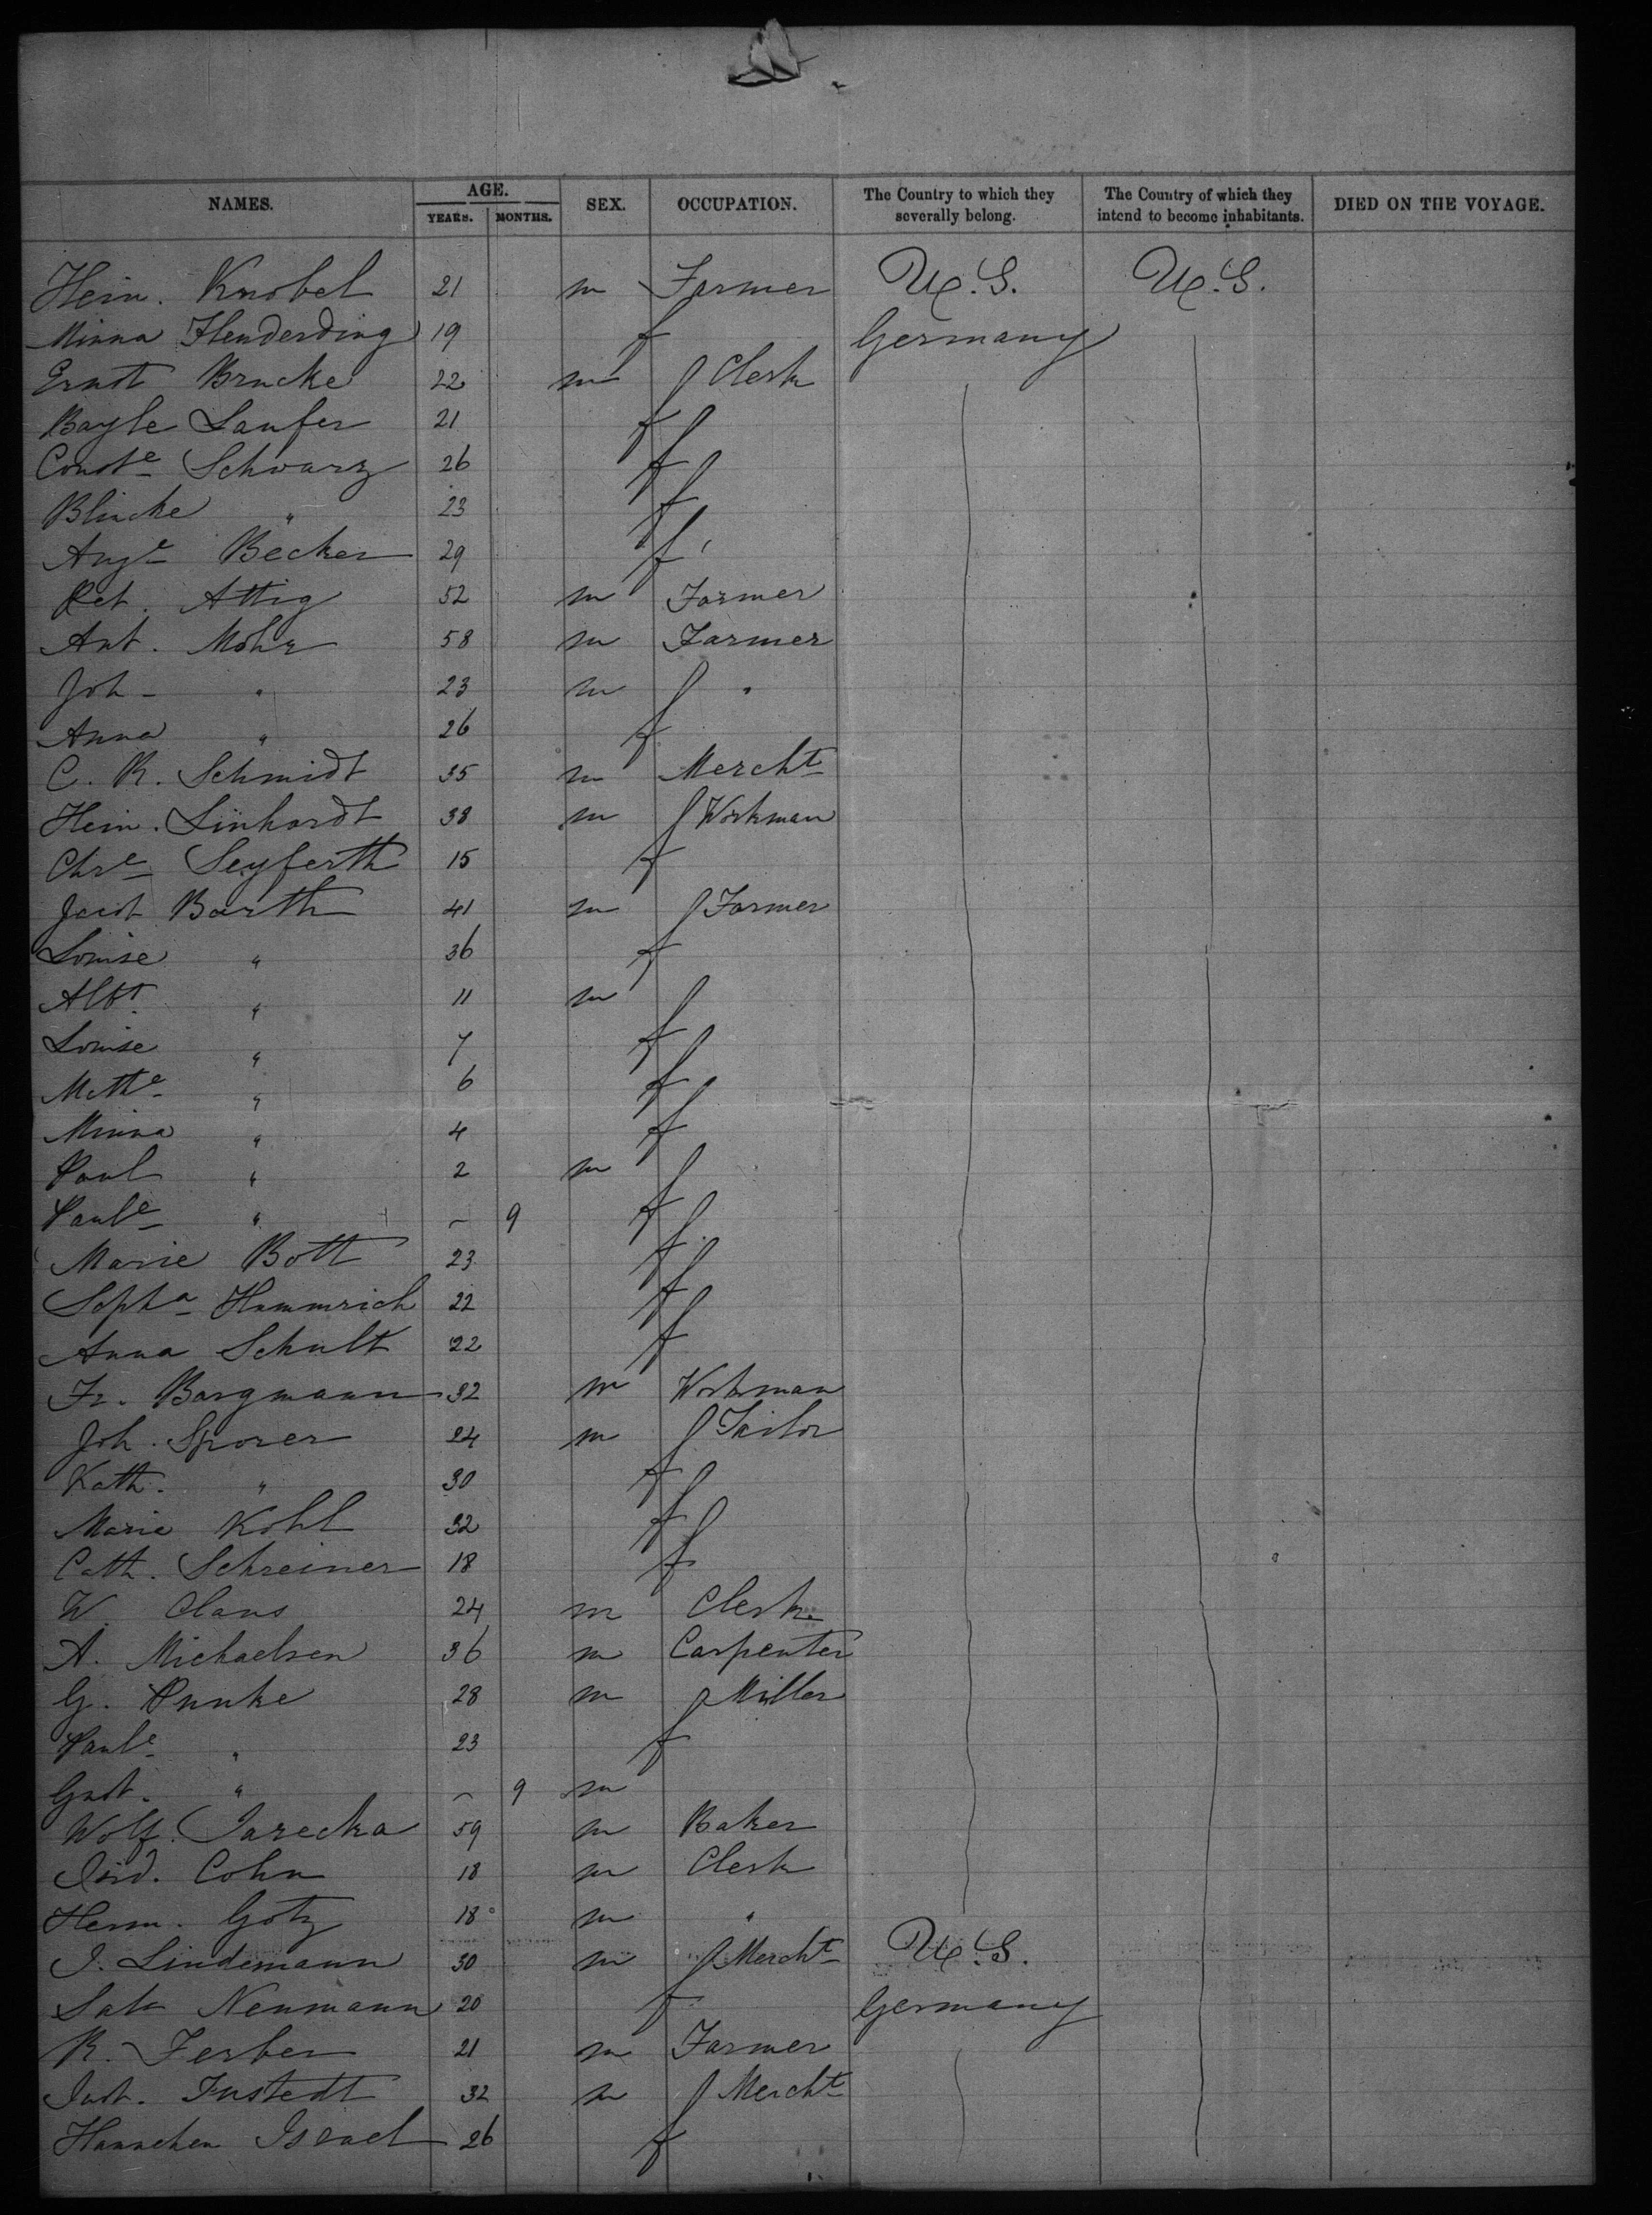 NAMES. AGE. YEARS. MONTHS. SEX. OCCUPATION. The Country to which they severally belong. The Country of which they intend to become inhabitants. DIED ON THE VOYAGE.
Hein. Knobel 21 m Farmer U.S. U.S.
Minna Henderding 19 f Germany
Ernst Brucke 22 m Clerk
Bayle Laufer 21 f
Conste Schwarz 26 f
Blincke " 23 f
Auge Becker 29 f
Pet. Attig 52 m Farmer
Ant. Mohr 58 m Farmer
Joh " 23 m "
Anna " 26 f
C. R. Schmidt 35 m Mercht
Hein. Linhardt 38 m Workman
Chre Seyferth 15 f
Barth 41 m Farmer
Louise " 36 f
Albt. " 11 m
Louise " 7 f
Mathe " 6 f
Minna " 4 f
Paul " 2 m
Paule " – 9 f
Marie Bott 23 f
Sopha Hammrich 22 f
Anna Schult 22 f
Fr. Bargmann 32 m Workman
Joh. Sporer 24 m Tailor
Kath. " 30 f
Marie Kohl 32 f
Cath. Schreiner 18 f
W. Claus 24 m Clerk
A. Michaelsen 36 m Carpenter
G. Punke 28 m Miller
Paule " 23 f
Gust. " – 9 m
Wolf. Jarecka 59 m Baker
Isid. Cohn 18 m Clerk
Herm. Gotz 18 m "
J. Lindemann 30 m Mercht U.S.
Neumann 20 f Germany
R. Ferber 21 m Farmer
Just. Fustedt 32 m Mercht
Hannchen Israel 26 f